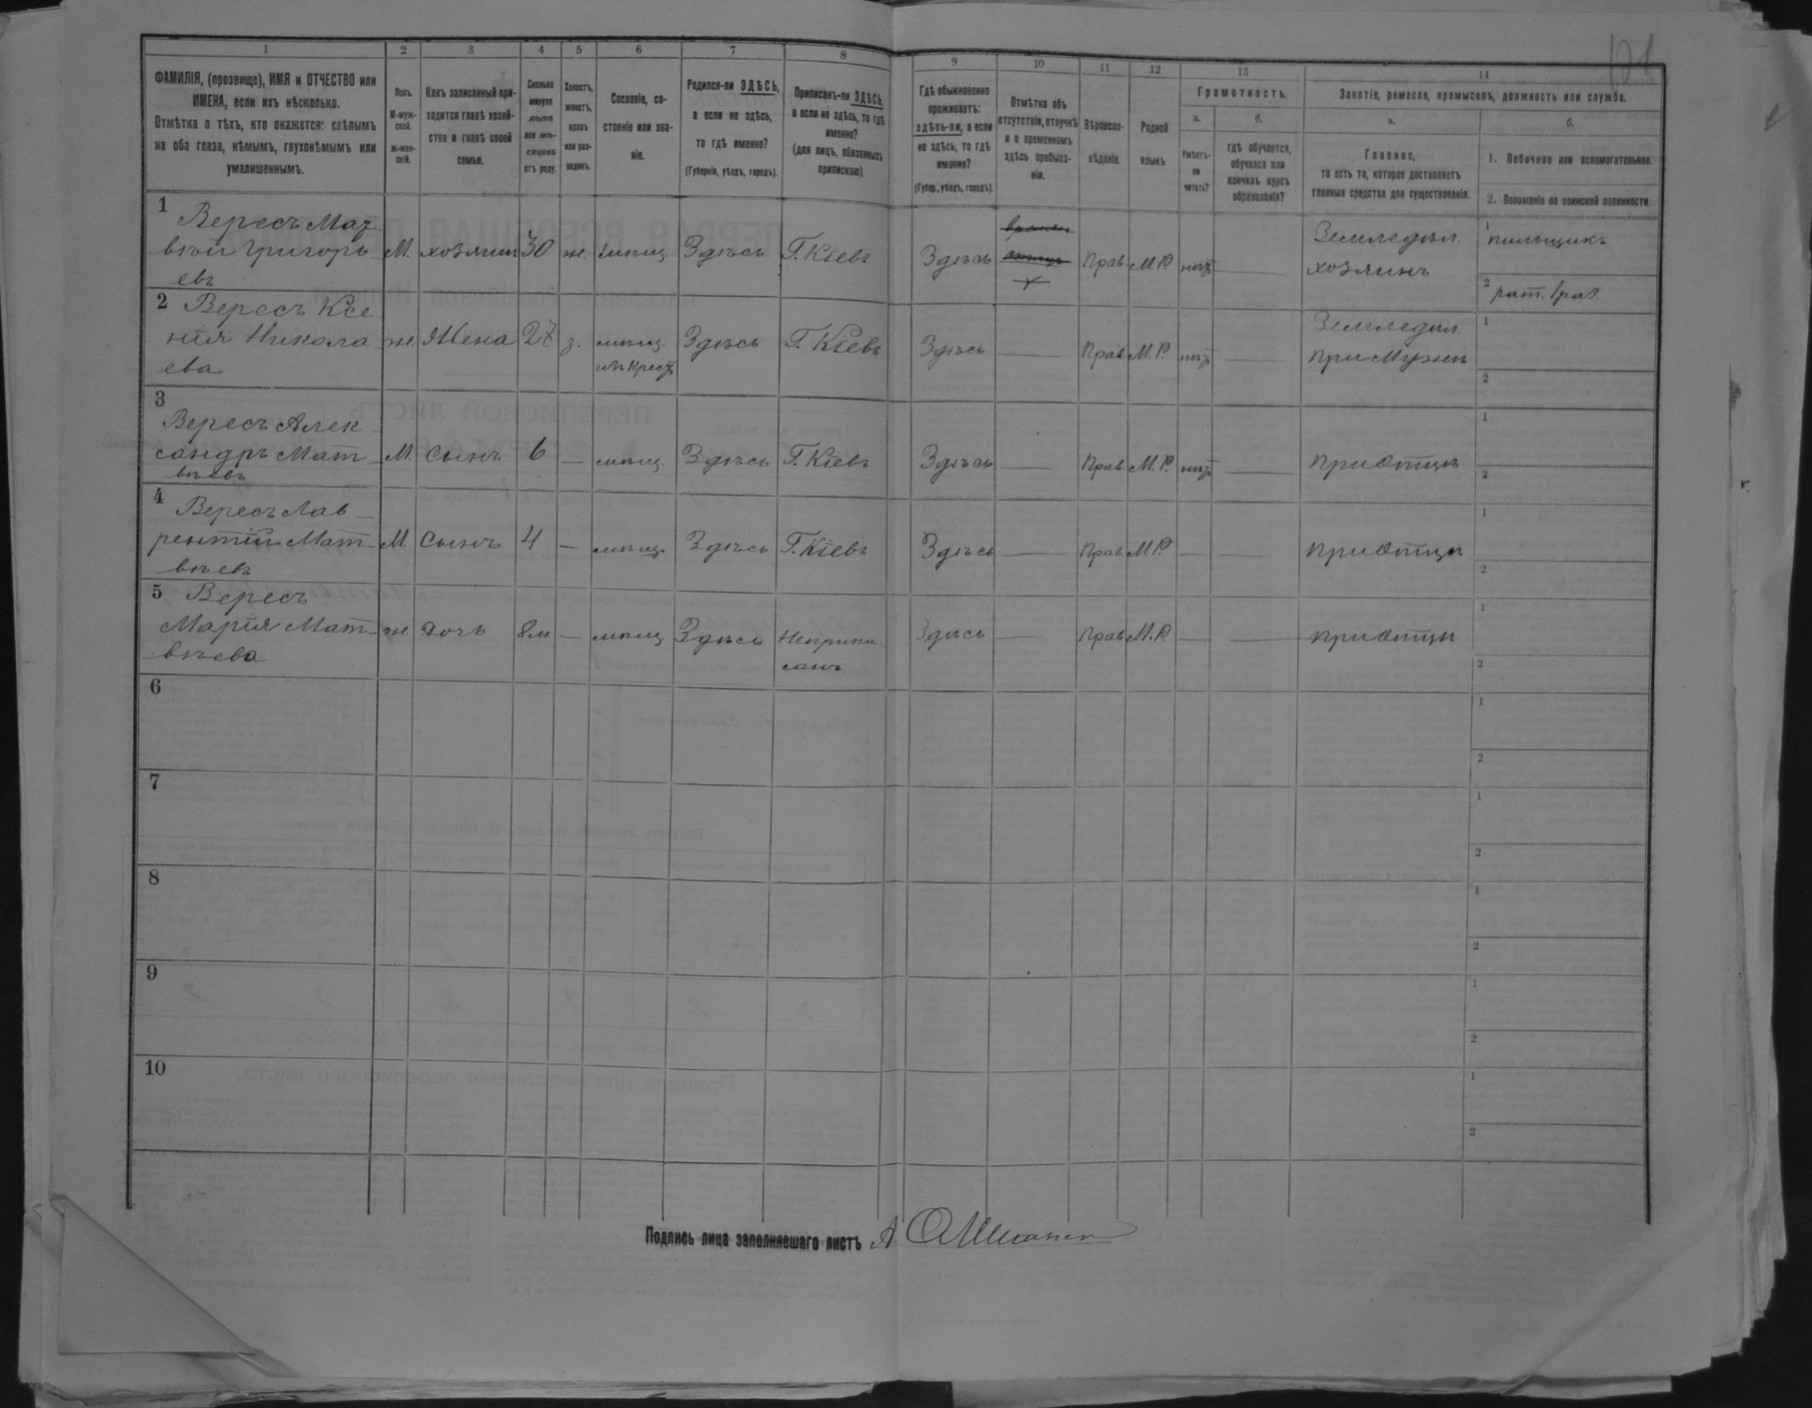 101
1
2
3
4
5
6
7
8
9
10
11
12
13
14
ФАМИЛІЯ, (прозвище), ИМЯ и ОТЧЕСТВО или
ИМЕНА, если ихъ нѣсколько.
Отмѣтка о тѣхъ, кто окажется: слѣпымъ
на оба глаза, нѣмымъ, глухонѣмымъ или
умалишеннымъ.
Полъ.
М-муж-
ской.
ж-жен-
скій.
Какъ записанный при-
ходится главѣ хозяй-
ства и главѣ своей
семьи.
Сколько
минуло
лѣтъ
или мѣ-
сяцевъ
отъ роду.
Холостъ,
женатъ,
вдовъ
или раз-
веденъ.
Сословіе, со-
стояніе или зва-
ніе.
Родился-ли ЗДѢСЬ,
а если не здѣсь,
то гдѣ именно?
(Губернія, уѣздъ, городъ).
Приписанъ-ли ЗДѢСЬ,
а если не здѣсь, то гдѣ
именно?
(для лицъ, обязанныхъ
припискою).
Гдѣ обыкновенно
проживаетъ:
здѣсь-ли, а если
не здѣсь, то гдѣ
именно?
(Губер., уѣздъ, городъ).
Отмѣтка объ
отсутствіи, отлучкѣ
и о временномъ
здѣсь пребыва-
ніи.
Вѣроиспо-
вѣданіе.
Родной
языкъ
Грамотность.
а.
Умѣетъ-
ли
читать?
б.
гдѣ обучается,
обучался или
кончилъ курсъ
образованія?
Занятіе, ремесло, промыселъ, должность или служба.
а.
Главное,
то есть то, которое доставляетъ
главныя средства для существованія.
б.
1. Побочное или вспомогательное.
2. Положеніе по воинской повинности.
1
Вересъ Мат
вѣй Григорь
евъ
М.
хозяин
30
ж.
мѣщ.
Здѣсь
Г. Кіевъ
Здѣсь
Прав
М.Р.
нѣт
Земледѣл.
хозяинъ
1 пильщикъ
2 рат. 1 раз.
2
Вересъ Ксе
нія Никола
ева
ж.
Жена
27
з.
мѣщ.
изъ Крест
Здѣсь
Г. Кіевъ
Здѣсь
Прав.
М.Р.
нѣт
Земледѣл
при мужѣ
1
2
3
Вересъ Алек
сандръ Мат
вѣевъ
М.
Сынъ
6
мѣщ.
Здѣсь
Г. Кіевъ
Здѣсь
Прав.
М.Р.
нѣт
при отцѣ
1
2
4
Вересъ Лав
рентій Мат
вѣевъ
М.
Сынъ
4
мѣщ.
Здѣсь
Г. Кіевъ
Здѣсь
Прав
М.Р.
при отцѣ
1
2
5
Вересъ
Марія Мат
вѣева
ж
дочь
8м
мѣщ
Здѣсь
Неприпи
санъ
Здѣсь
Прав
М.Р.
при отцѣ
1
2
6
1
2
7
1
2
8
1
2
9
1
2
10
1
2
Подпись лица заполнявшаго листъ